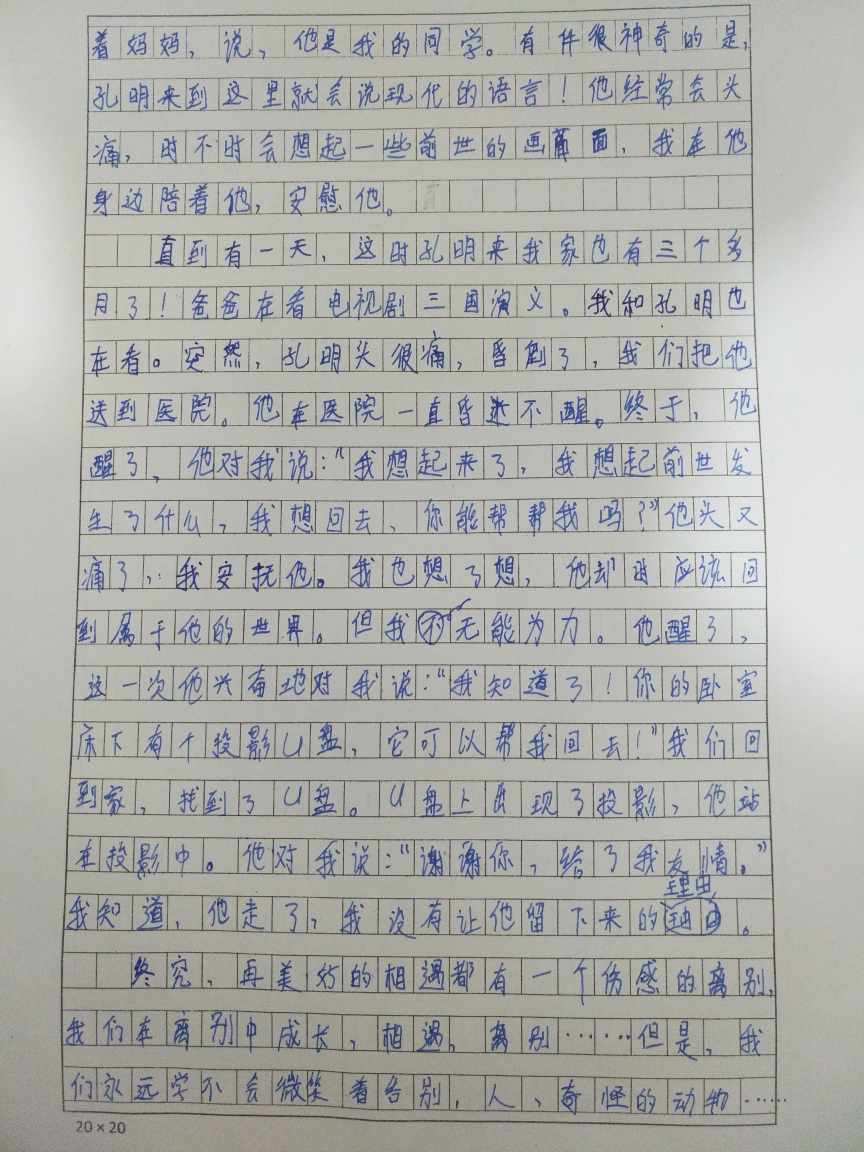 着妈妈，说，他是我的同学。有件很神奇的是，
孔明来到这里就会说现代的语言！他经常会头
痛，时不时会想起一些前世的画面，我在他
身边陪着他，安慰他。
直到有一天，这时孔明来我家也有三个多
月了！爸爸在看电视剧三国演义。我和孔明也
在看。突然，孔明头很痛，昏倒了，我们把他
送到医院。他在医院一直昏迷不醒。终于，他
醒了，他对我说："我想起来了，我想起前世发
生了什么，我想回去、你能帮帮我吗？"他头又
痛了，我安抚他。我也想了想，他却时应该回
到属于他的世界。但我无能为力。他醒了，
这一次他兴奋地对我说："我知道了！你的卧室
床下有个投影U盘，它可以帮我回去！"我们回
到家，找到了U盘。U盘上出现了投影，他站
在投影中。他对我说："谢谢你，给了我友情。"
理由
我知道，他走了，我没有让他留下来的。
终究，再美好的相遇都有一个伤感的离别，
我们在离别中成长，相遇，离别……但是，我
们永远学不会微笑着告别，人、奇怪的动物……
20×20